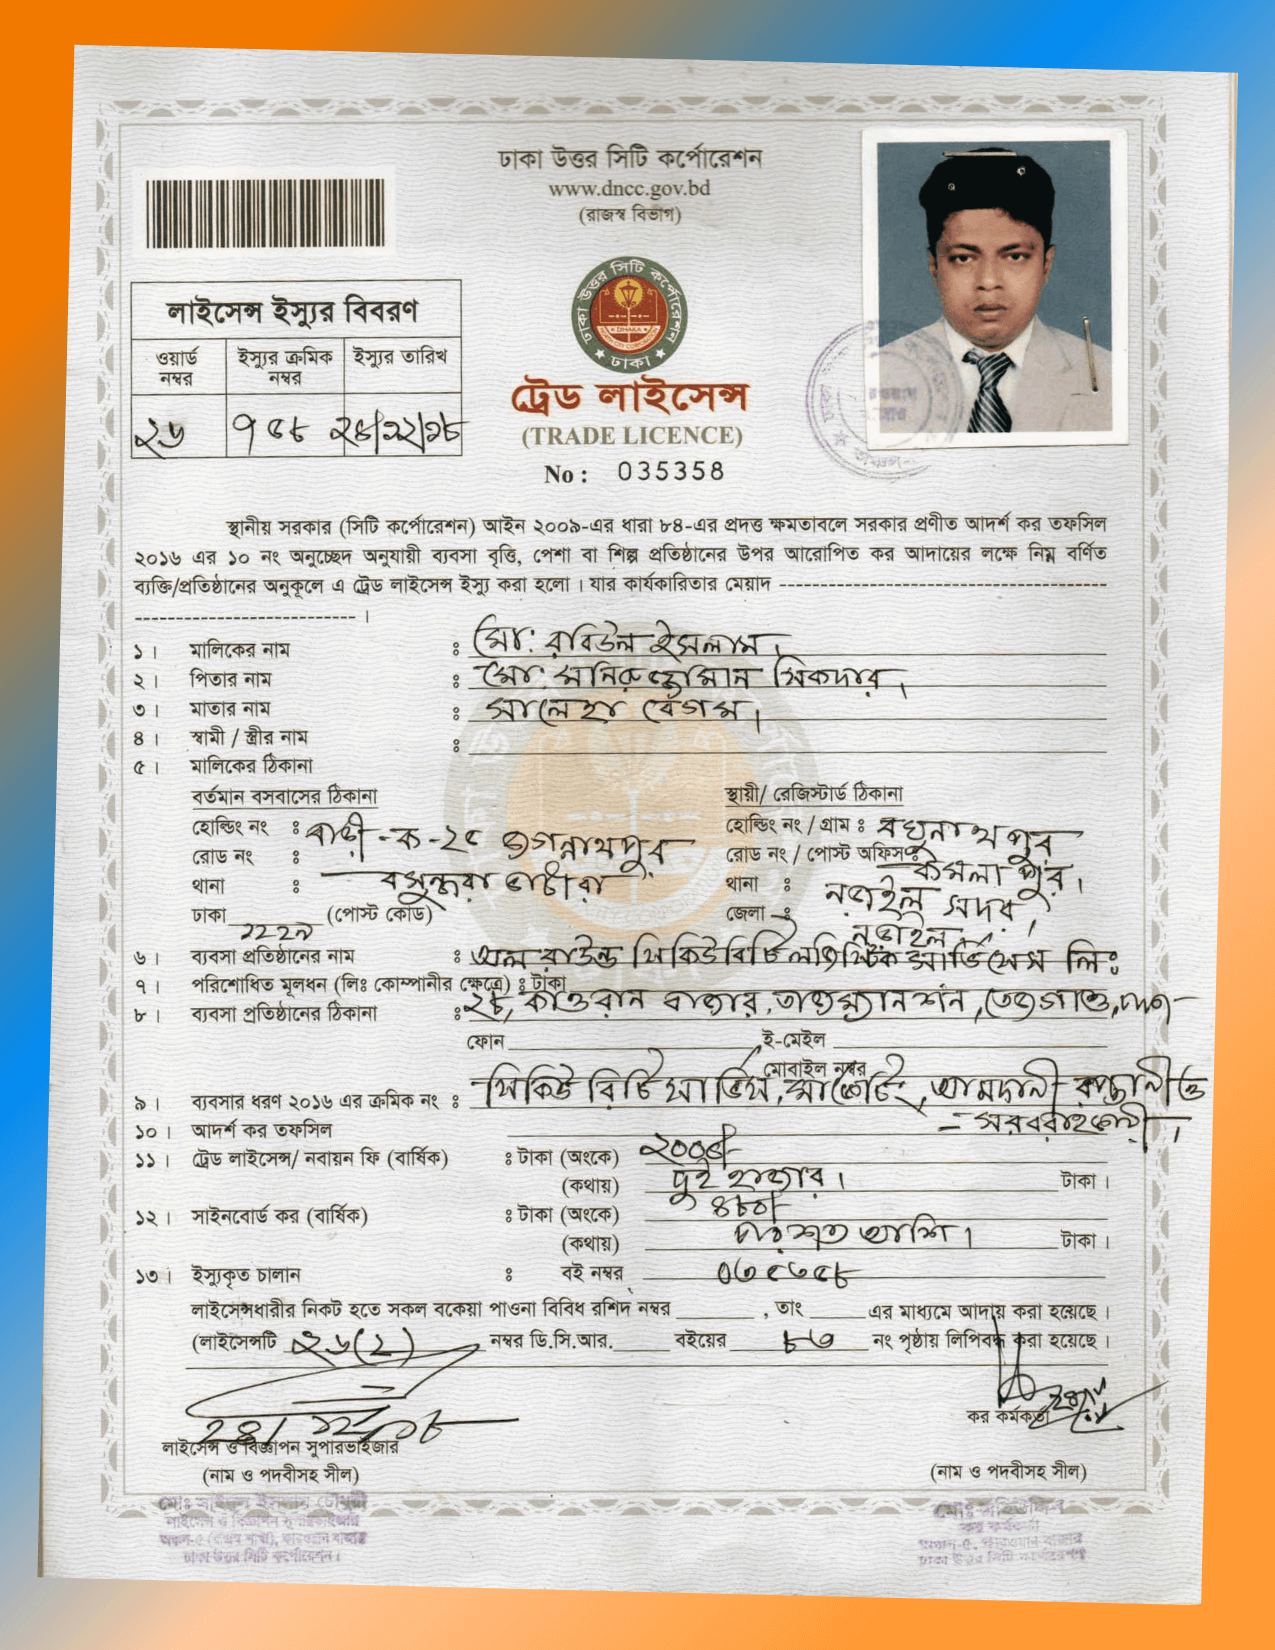 ঢাকা উত্তর সিটি কর্পোরেশন
www.dncc.gov.bd
(রাজস্ব বিভাগ)
লাইসেন্স ইস্যুর বিবরণ
ওয়ার্ড নম্বর ইস্যুর ক্রমিক নম্বর ইস্যুর তারিখ
২৬ ৭৫৮ ২৪/১২/১৮
ঢাকা উত্তর সিটি কর্পোরেশন
DHAKA
ঢাকা
ট্রেড লাইসেন্স
(TRADE LICENCE)
No : 035358
স্থানীয় সরকার (সিটি কর্পোরেশন) আইন ২০০৯-এর ধারা ৮৪-এর প্রদত্ত ক্ষমতাবলে সরকার প্রণীত আদর্শ কর তফসিল
২০১৬ এর ১০ নং অনুচ্ছেদ অনুযায়ী ব্যবসা বৃত্তি, পেশা বা শিল্প প্রতিষ্ঠানের উপর আরোপিত কর আদায়ের লক্ষে নিম্ন বর্ণিত
ব্যক্তি/প্রতিষ্ঠানের অনুকূলে এ ট্রেড লাইসেন্স ইস্যু করা হলো । যার কার্যকারিতার মেয়াদ
১। মালিকের নাম : মো: রবিউল ইসলাম।
২। পিতার নাম : মো: মনিরুজ্জামান সিকদার।
৩। মাতার নাম : সালেহা বেগম।
৪। স্বামী / স্ত্রীর নাম :
৫। মালিকের ঠিকানা
বর্তমান বসবাসের ঠিকানা স্থায়ী/ রেজিস্টার্ড ঠিকানা
হোল্ডিং নং : বাড়ী-ক-২৫ জগন্নাথপুর হোল্ডিং নং / গ্রাম : রঘুনাথপুর
রোড নং : রোড নং / পোস্ট অফিস : কমলাপুর।
থানা : বসুন্ধরা ভাটারা থানা : নড়াইল সদর,
ঢাকা (পোস্ট কোড) ১২২৯ জেলা : নড়াইল।
৬। ব্যবসা প্রতিষ্ঠানের নাম : অল রাউন্ড সিকিউরিটি লজিস্টিক সার্ভিসেস লিঃ
৭। পরিশোধিত মূলধন (লিঃ কোম্পানীর ক্ষেত্রে) : টাকা
৮। ব্যবসা প্রতিষ্ঠানের ঠিকানা : ২৮, কাওরান বাজার, তাজ ম্যানশন, তেজগাঁও, ঢাকা-
ফোন ই-মেইল
মোবাইল নম্বর
৯। ব্যবসার ধরণ ২০১৬ এর ক্রমিক নং : সিকিউরিটি সার্ভিস, আমদানী রপ্তানী ও
১০। আদর্শ কর তফসিল - সরবরাহকারী।
১১। ট্রেড লাইসেন্স/ নবায়ন ফি (বার্ষিক) : টাকা (অংকে) ২০০০/-
(কথায়) দুই হাজার। টাকা ।
১২। সাইনবোর্ড কর (বার্ষিক) : টাকা (অংকে) ৪৮০/
(কথায়) চারশত আশি। টাকা ।
১৩। ইস্যুকৃত চালান : বই নম্বর ০৩৫৩৫৮
লাইসেন্সধারীর নিকট হতে সকল বকেয়া পাওনা বিবিধ রশিদ নম্বর , তাং এর মাধ্যমে আদায় করা হয়েছে ।
(লাইসেন্সটি ২৬(২) নম্বর ডি.সি.আর. বইয়ের ৮৩ নং পৃষ্ঠায় লিপিবদ্ধ করা হয়েছে ।
২৪/১২/১৮
লাইসেন্স ও বিজ্ঞাপন সুপারভাইজার কর কর্মকর্তা
(নাম ও পদবীসহ সীল) (নাম ও পদবীসহ সীল)
লাইসেন্স ও বিজ্ঞাপন সুপারভাইজার কর কর্মকর্তা
ঢাকা উত্তর সিটি কর্পোরেশন। ঢাকা উত্তর সিটি কর্পোরেশন